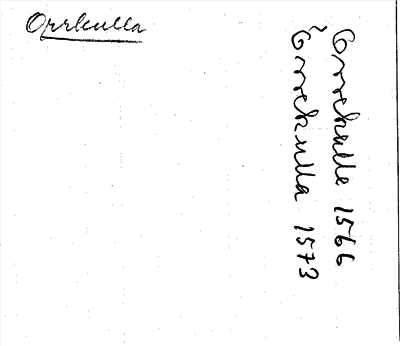 Orrkulla
Orrekulle 1566
Orrekulla 1573